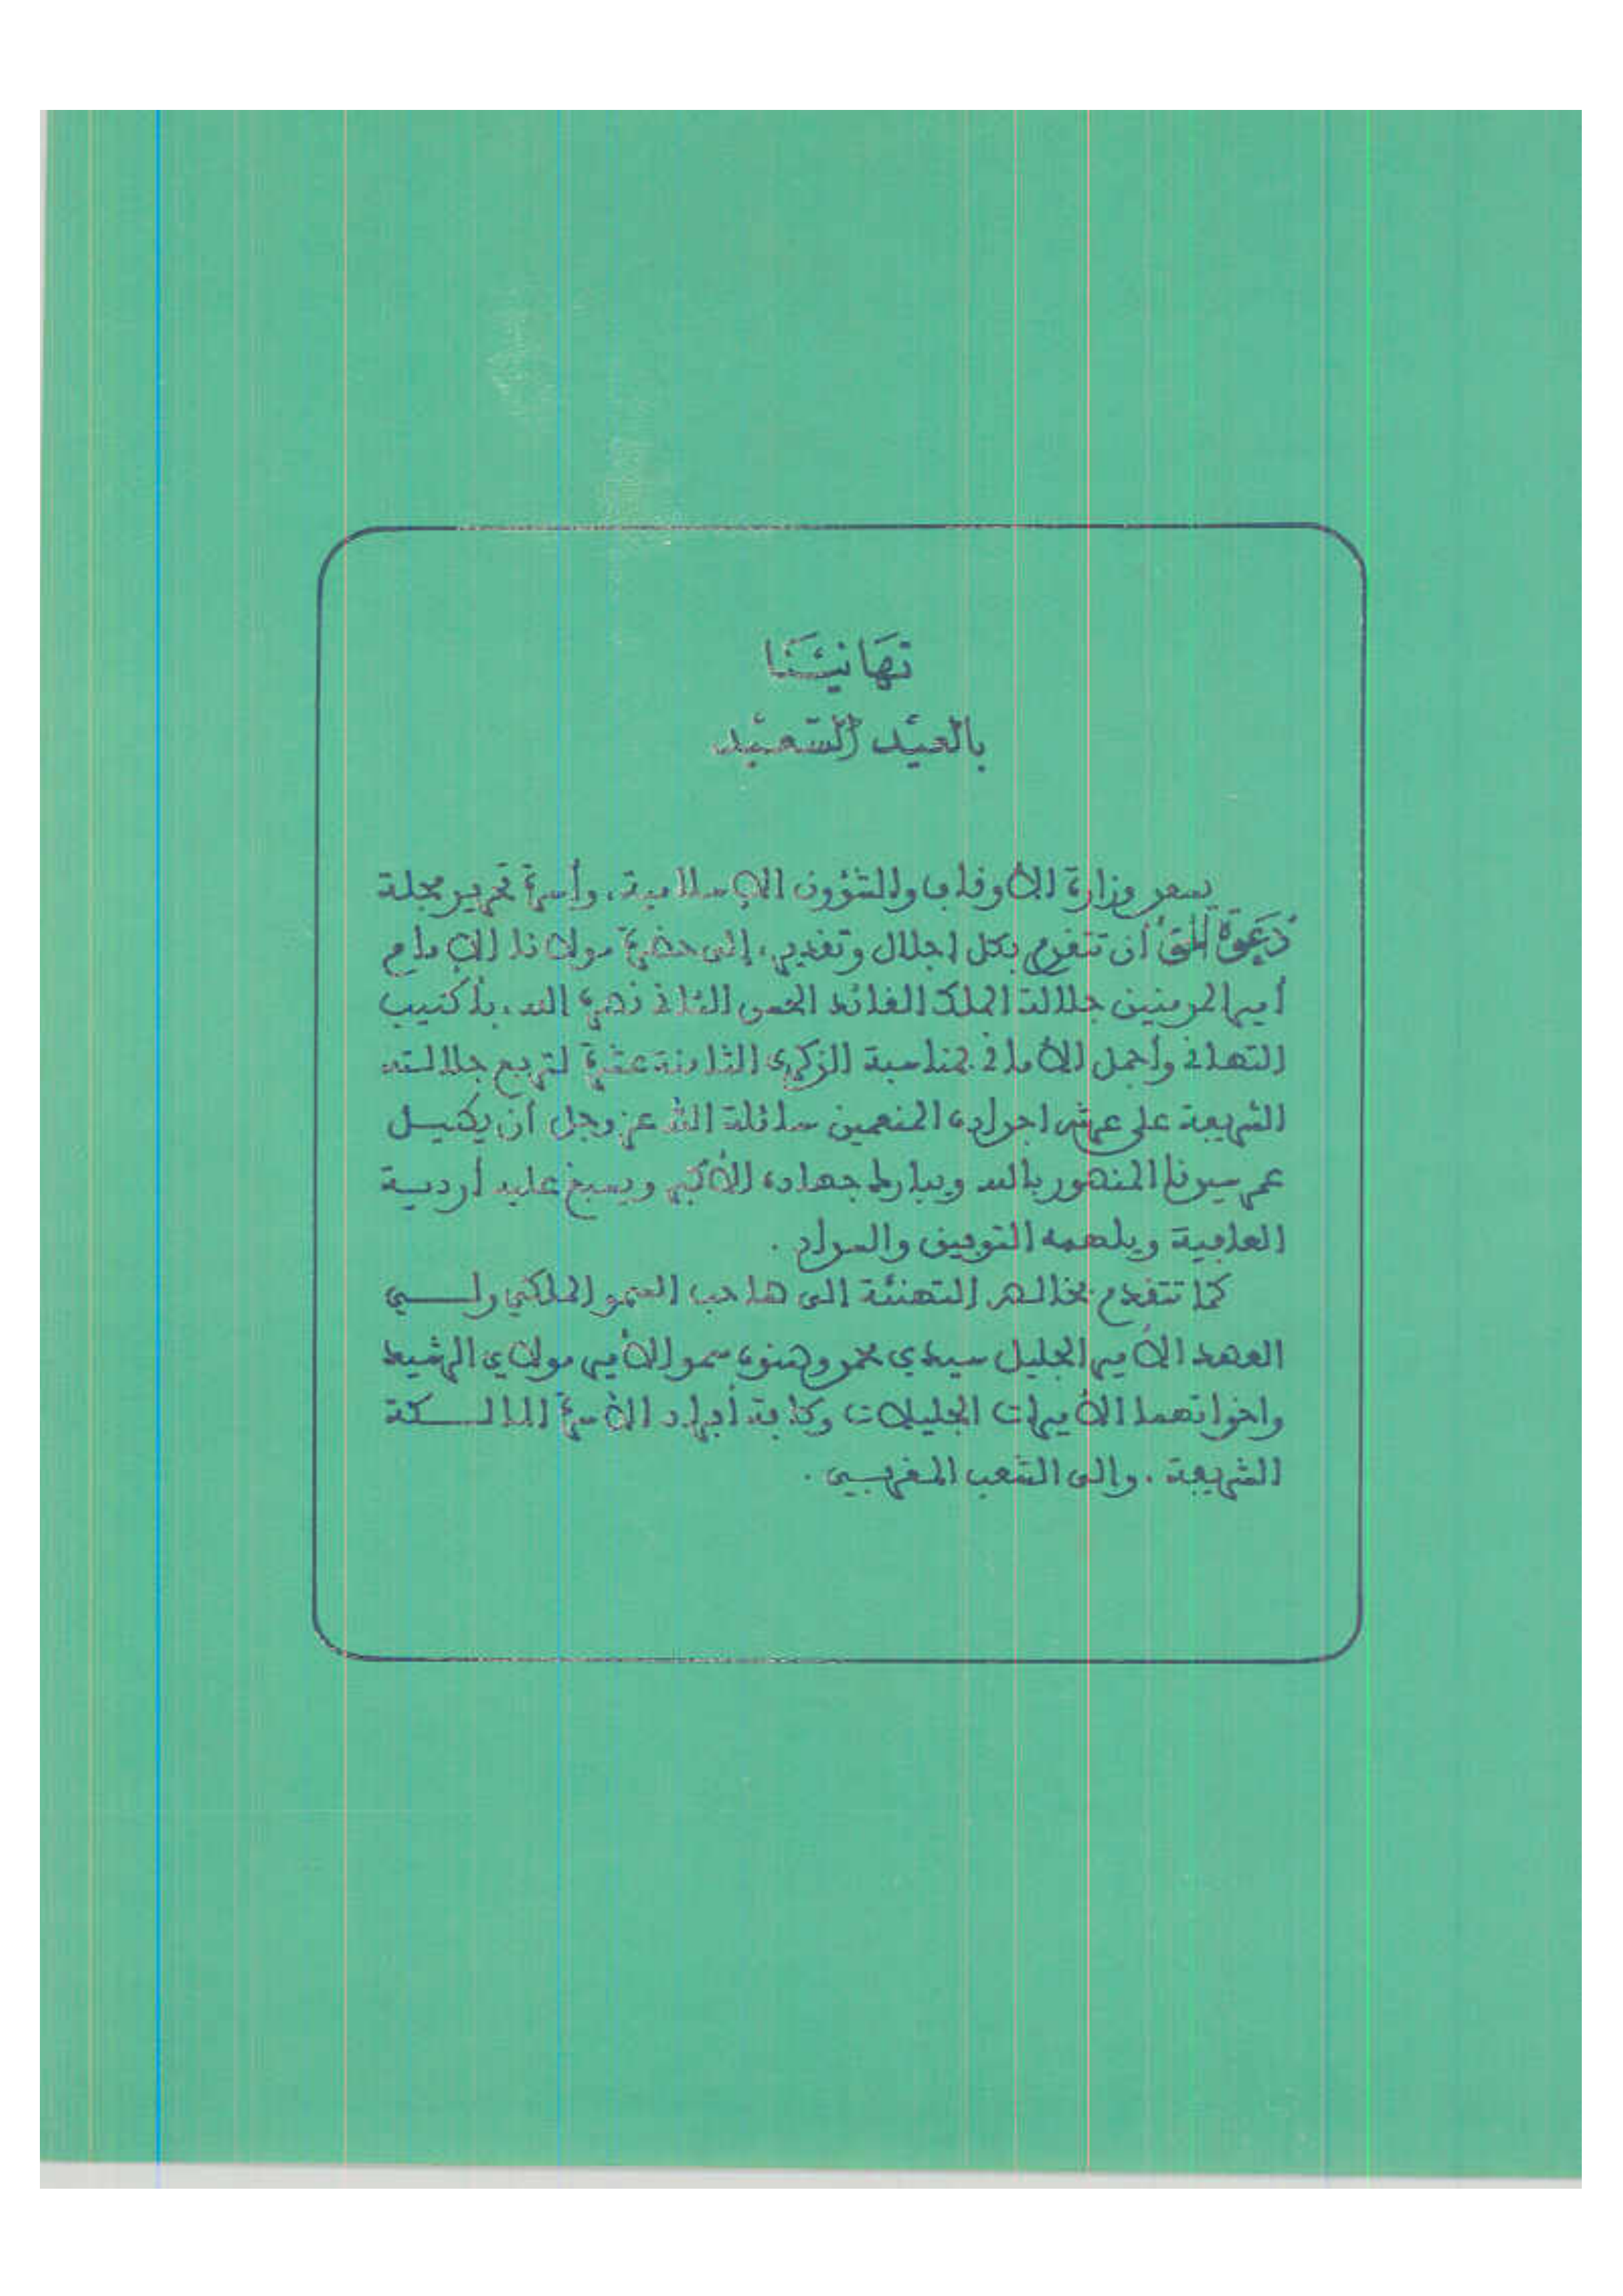 تهَانيَنَا
بالعيد السَّعيد
يسعد وزارة الأوقاف والشؤون الإسلامية، وأسرة تحرير مجلة
"دَعوة الحق" أن تتقدم بكل اجلال وتقدير، إلى حضرة مولانا الإمام
أمير المومنين جلالة الملك القائد الحسن الثاني نصره الله، بأطيب
التهاني وأجمل الأماني بمناسبة الذكرى الثامنة عشرة لتربع جلالته
الشريفة على عرش اجداده المنعمين سائلة الله عز وجل أن يطيل
عمر سيدنا المنصور بالله ويبارك جهاده الأكبر ويسبغ عليه أردية
العافية ويلهمه التوفيق والسداد .
كما تتقدم بخالص التهنئة الى صاحب السمو الملكي ولي
العهد الأمير الجليل سيدي محمد وصنوه سمو الأمير مولاي الرشيد
واخواتهما الأميرات الجليلات وكافة أفراد الأسرة المالكة
الشريفة . والى الشعب المغربي .